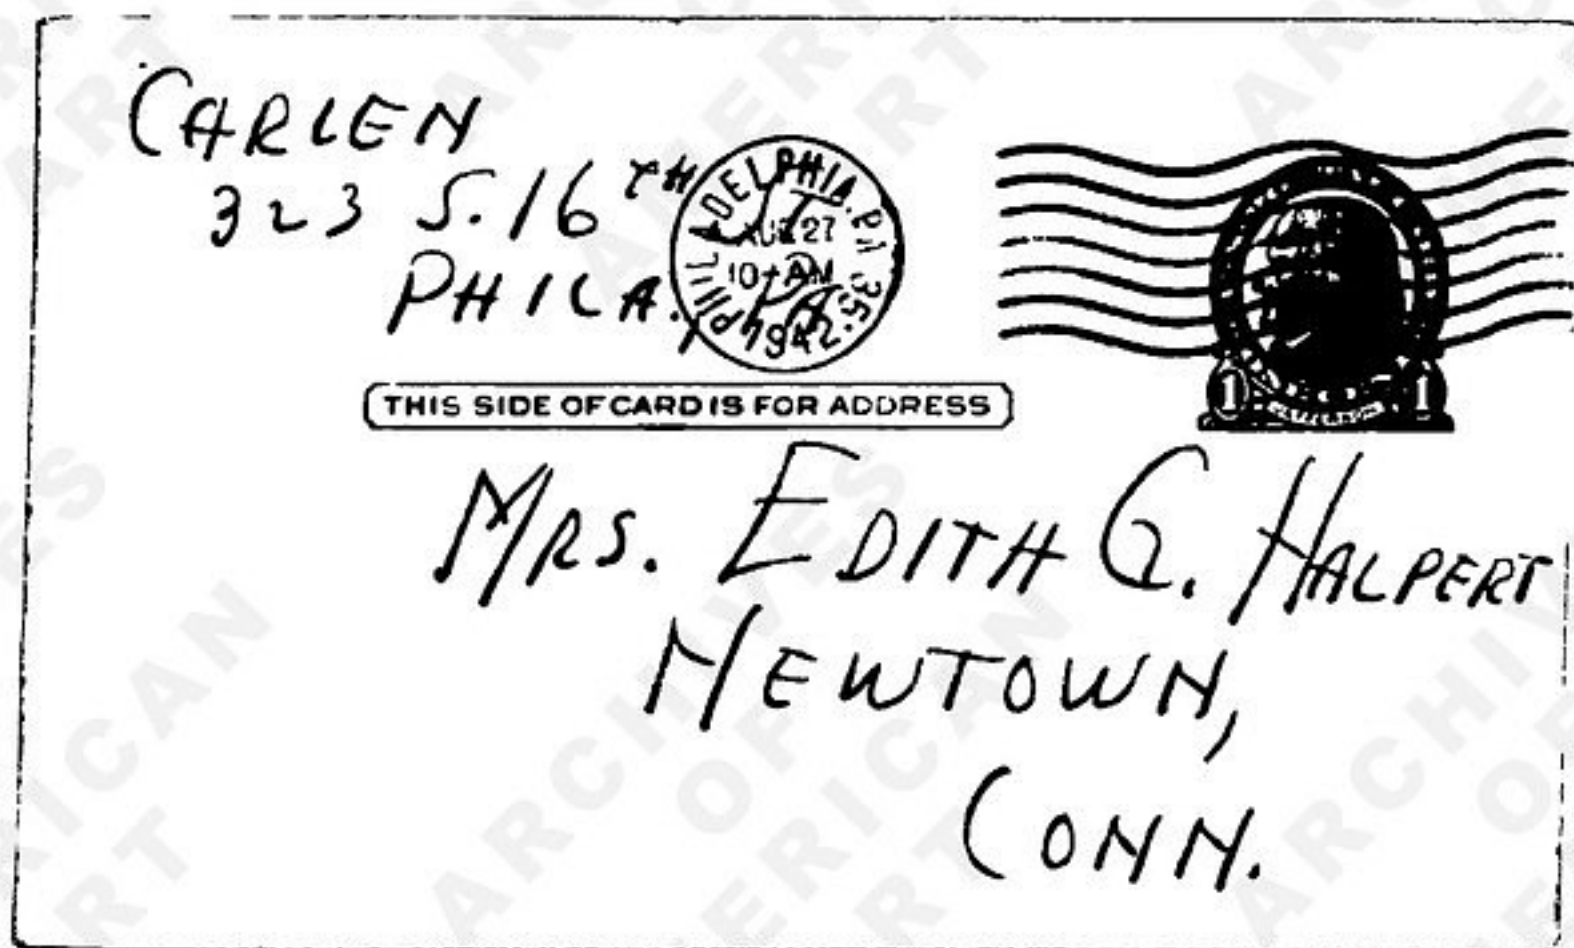 CARLEN
323 S. 16TH ST
PHILA., PA
PHILADELPHIA. PA 35.
AUG 27
10 AM
1942
THIS SIDE OF CARD IS FOR ADDRESS
1 1
MRS. EDITH G. HALPERT
NEWTOWN,
CONN.
ARCHIVES
OF
AMERICAN
ART